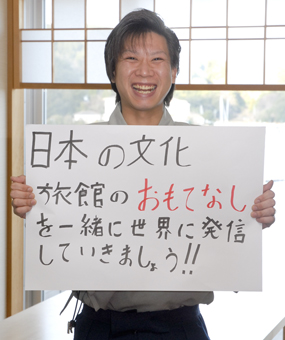 日本の文化
旅館のおもてなし
を一緒に世界に発信
していきましょう!!